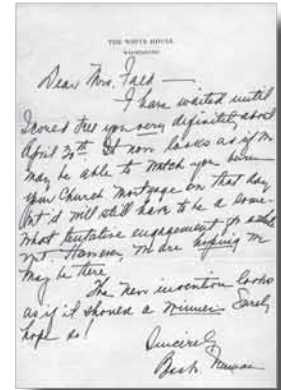 THE WHITE HOUSE
WASHINGTON
Dear Mrs.
I have waited until
I could tell you very definitely about
April 30th. It now looks as if we
may be able to watch you burn
your Church Mortgage on that day
but it will still have to be a some-
what tentative engagement
However, we are hoping we
may be there.
The new invention looks
as if it should a winner. Surely
hope so!
Sincerely
Bess Truman